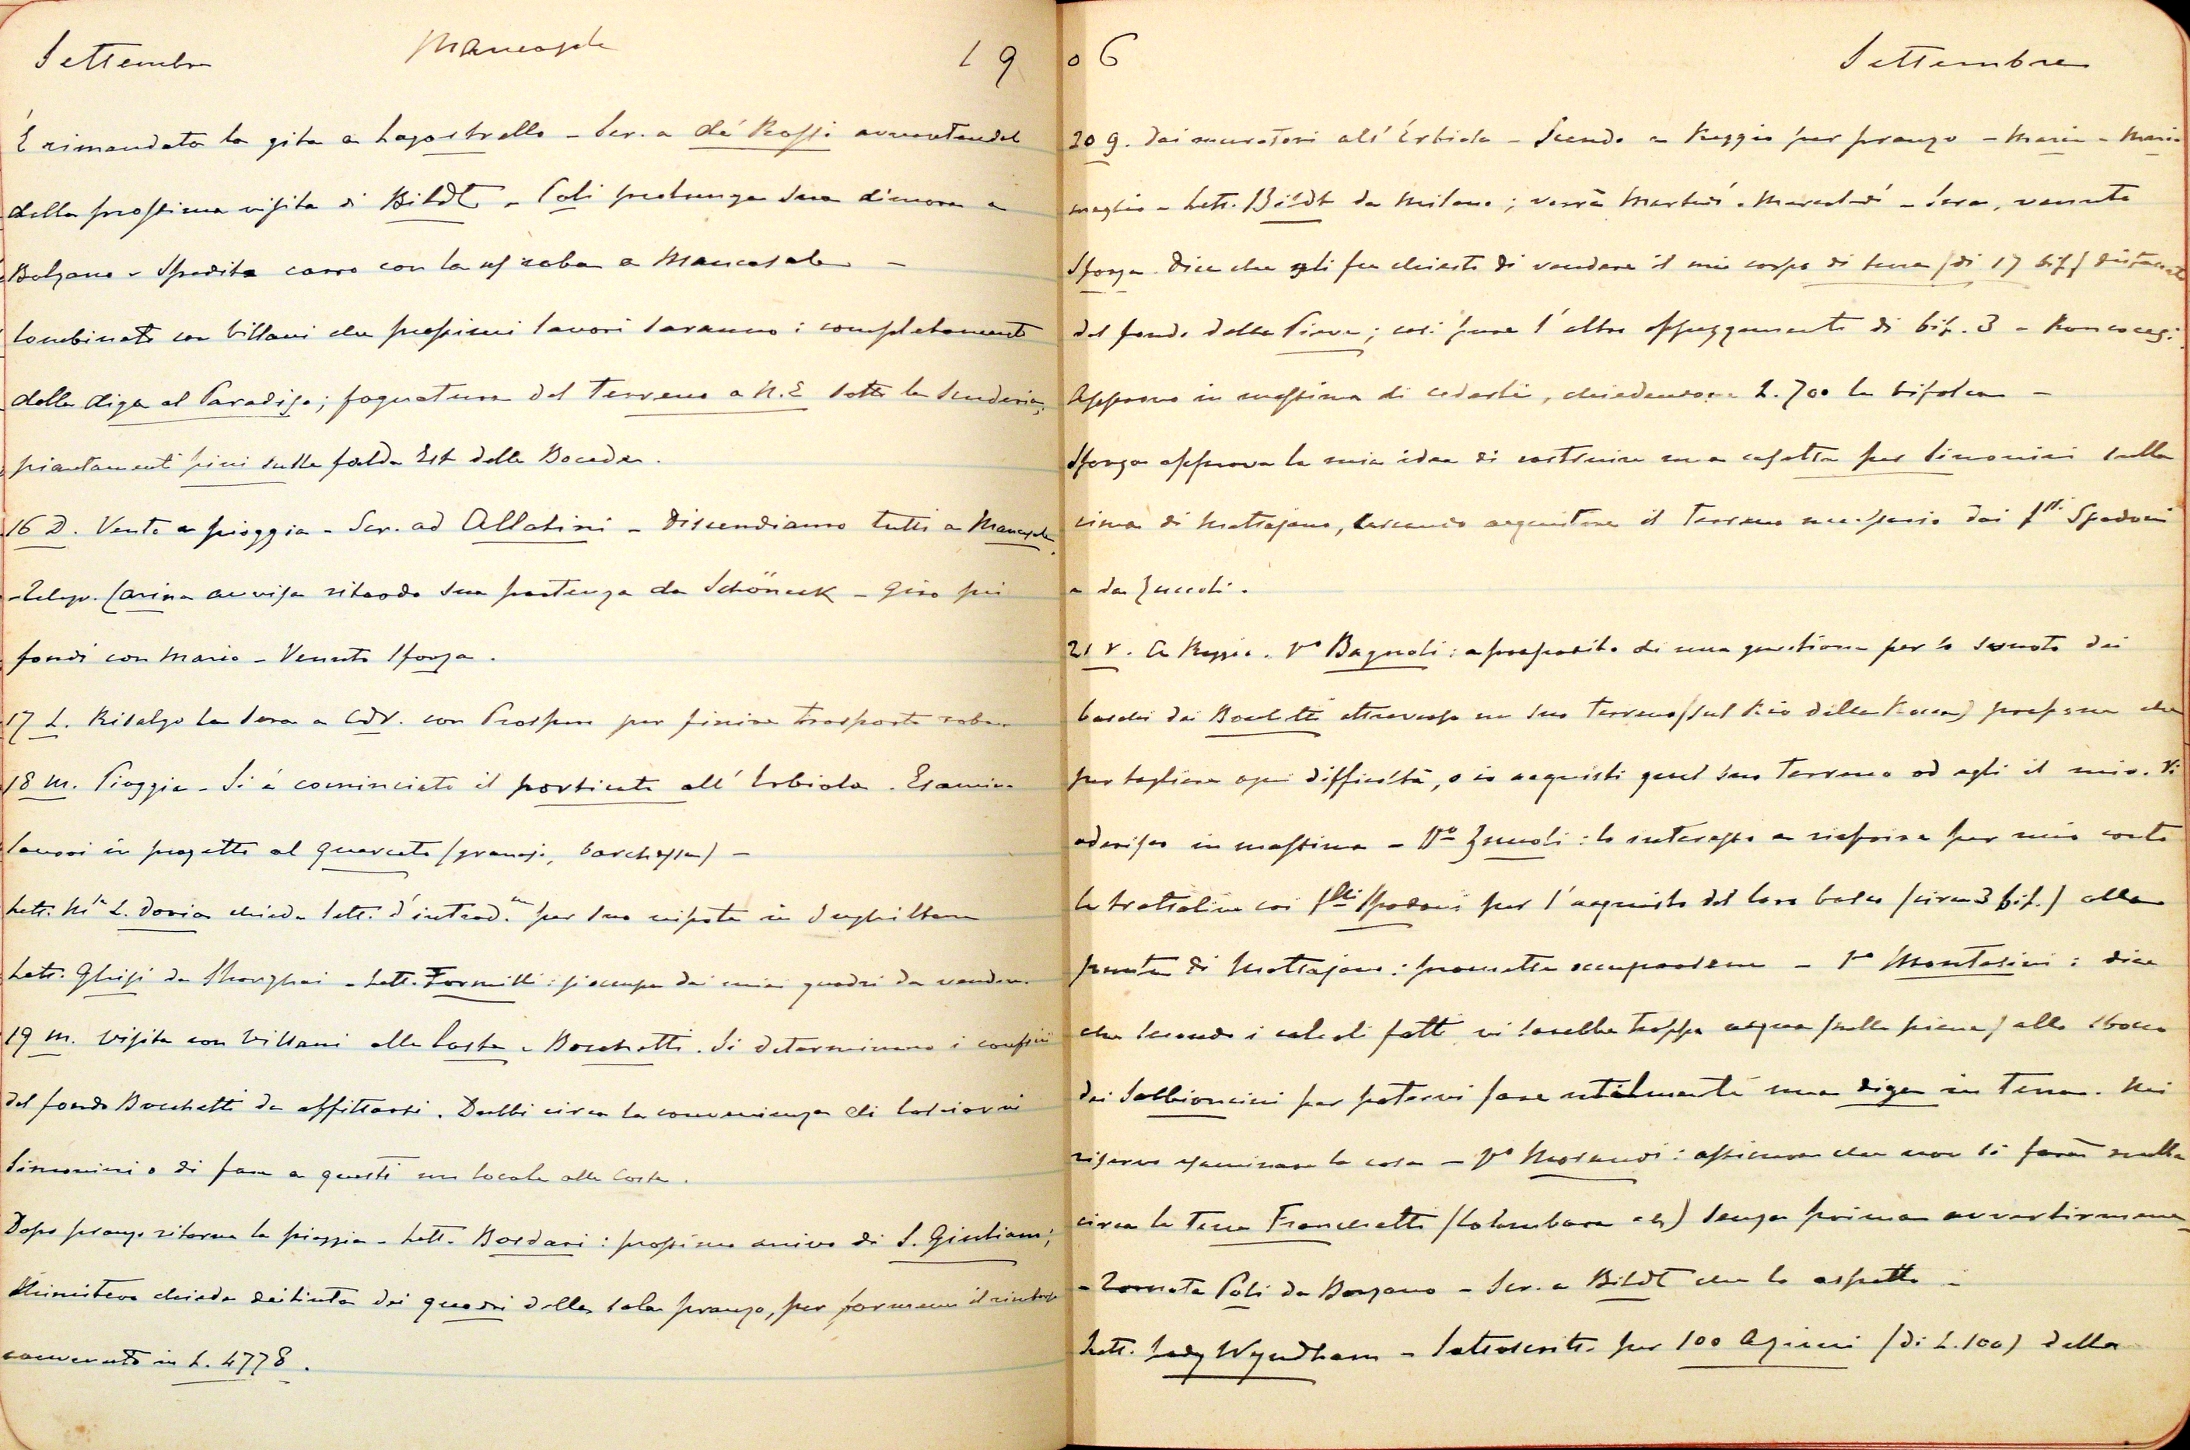 Settembre Mancasale 19
È rimandata la gita a Lagastrello - Scr. a de' Rossi avvertendol
della prossima visita di Bildt - Poli prolunga sua dimora a
Bolzano - Spedita carro con la roba a Mancasale -
Combinato con Villani che prossimi lavori saranno: completamento
della diga al Paradiso; fognatura del terreno a N.E sotto la scuderia;
piantamenti pini sulla falda Est della Boceda.
16 D. Vento e pioggia - Scr. ad Allatini - Discendiamo tutti a Mancasale.
- Telegr. Carina avvisa ritardo sua partenza da Schöneck - Giro pei
fondi con Mario - Venuto Sforza.
17 L. Risalgo la sera a CdV. con Prospero per finire trasporto roba.
18 M. Pioggia - Si è cominciato il porticato all'Erbiola. Esamino
lavori in progetto al Querceto (granajo, barchessa) -
Lett. L. Doria chiede lett. d'introd. per suo nipote in Inghilterra
Lett. Ghisi da Shanghai - Lett. Formilli: si occupa dei miei quadri da vendere.
19 M. Visita con Villani alla Costa e Boschetti. Si determinano i confini
del fondo Boschetti da affittarsi. Dubbi circa la convenienza di lasciarvi
Simonini o di fare a questi un locale alla Costa.
Dopo pranzo ritorna la pioggia - Lett. Bordari: prossimo arrivo di S. Giuliano;
Ministero chiede distinta dei quadri della sala pranzo, per il rimborso
convenuto in L. 4778.
06 Settembre
20 G. Dai muratori all'Erbiola - Scendo a Reggio per pranzo - Maria - Mario
meglio - Lett. Bildt da Milano; verrà Martedì o Mercoledì - Sera, venuto
Sforza. Dice che gli fu chiesto di vendere il mio corpo di terra (di 17 bif.) distaccato
dal fondo della Pieve; così pure l'altro appezzamento di bif. 3 a Roncocesi.
Approvo in massima di cederli, chiedendone L. 700 la bifolca -
Sforza approva la mia idea di costruire una casetta per Simonini sulla
cima di Mattajano, cercando acquistare il terreno necessario dai f.lli Spadoni
e da Zuccoli.
21 V. A Reggio. V° Bagnoli: a proposito di una questione per lo scolo dei
boschi dei Boschetti attraverso un suo terreno (sul Rio della Rocca) propone che
per togliere ogni difficoltà, o io acquisti quel suo terreno od egli il mio. Vi
aderisco in massima - V° Zuccoli: lo interesso a riaprire per mio conto
le trattative coi f.lli Spadoni per l'acquisto del loro bosco (circa 3 bif.) alla
punta di Mattajano: promette occuparsene - V° Montasini: dice
che secondo i calcoli fatti vi sarebbe troppa acqua (nelle piene) allo sbocco
dei Sabbioncini per potervi fare utilmente una diga in terra. Mi
riservo esaminare la cosa - V° Morandi: assicura che non si farà nulla
circa la terra Franchetti (Colombara etc) senza prima avvertirmene
- Tornata Poli da Borzano - Scr. a Bildt che lo aspetto -
Lett. Lady Wyndham - Sottoscritto per 100 Azioni (di L. 100) della